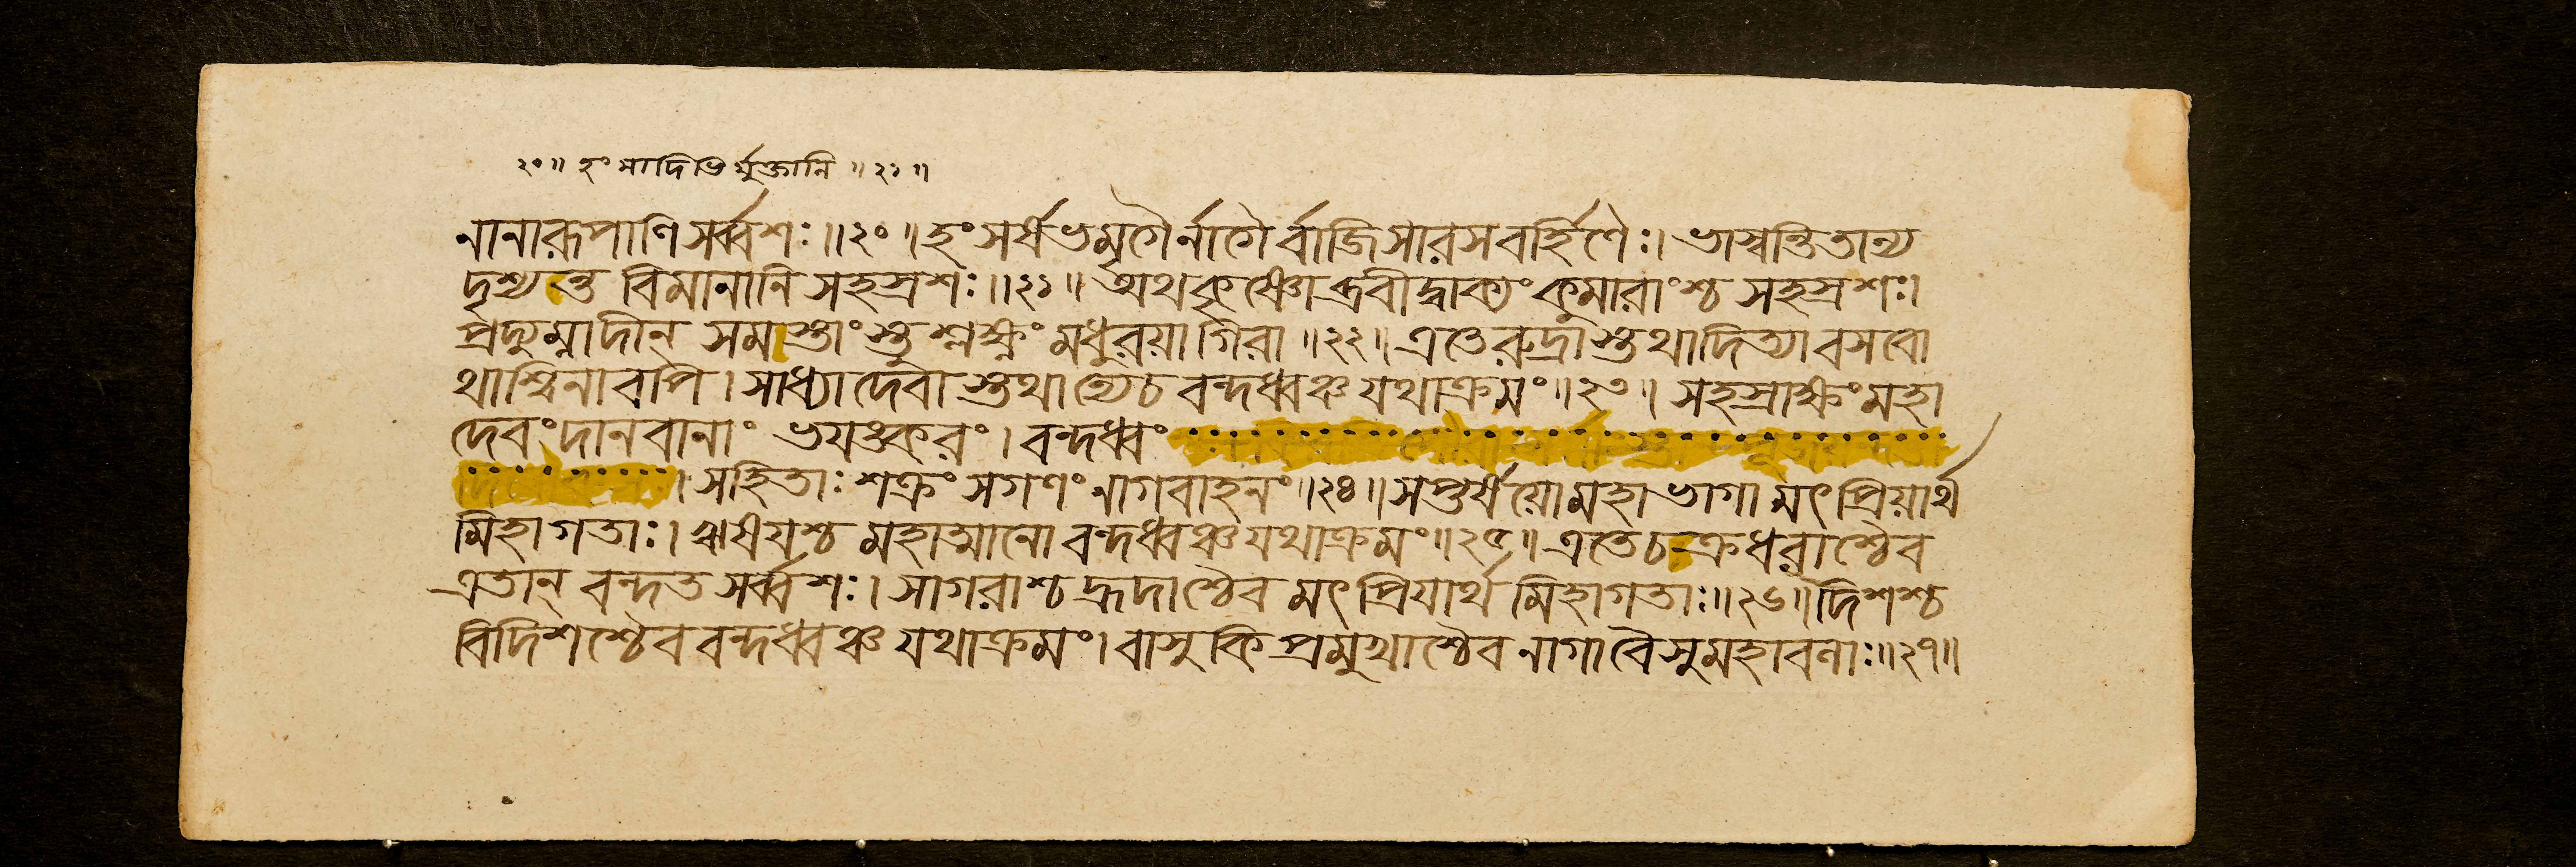 ২০॥ হংসাদিভির্মুক্তানি ॥২১॥
নানারূপাণি সর্ব্বশঃ॥২০॥ হংসর্ষভমৃগৈর্নাগৈর্বাজিসারসবর্হিণৈঃ। ভাস্বন্তি তান্য
দৃশ্যন্ত বিমানানি সহস্রশঃ॥২১॥ অথ কৃষ্ণোব্রবীদ্বাক্যং কুমারাংশ্চ সহস্রশঃ।
প্রদ্যুম্নাদীন্ সমস্তাংস্তু শ্লক্ষ্ণং মধুরয়া গিরা॥২২॥ এতে রুদ্রাস্তথাদিত্যা বসবো
থাশ্বিনাবপি। সাধ্যা দেবাস্তথান্যেচ বন্দধ্বঞ্চ যথাক্রমং॥২৩॥ সহস্রাক্ষং মহা
দেবং দানবানাং ভয়ঙ্করং। বন্দধ্বং
। সহিতাঃ শক্রং সগণং নাগবাহনং॥২৪॥ সপ্তর্ষয়ো মহাভাগা মৎপ্রিয়ার্থ
মিহাগতাঃ। ঋষয়শ্চ মহাত্মানো বন্দধ্বঞ্চ যথাক্রমং॥২৫॥ এতে চক্রধরাশ্চৈব
এতান্ বন্দত সর্ব্বশঃ। সাগরাশ্চ হ্রদাশ্চৈব মৎপ্রিয়ার্থ মিহাগতাঃ॥২৬॥ দিশশ্চ
বিদিশশ্চৈব বন্দধ্বঞ্চ যথাক্রমং। বাসুকি প্রমুখাশ্চৈব নাগা বৈ সুমহাবলাঃ॥২৭॥